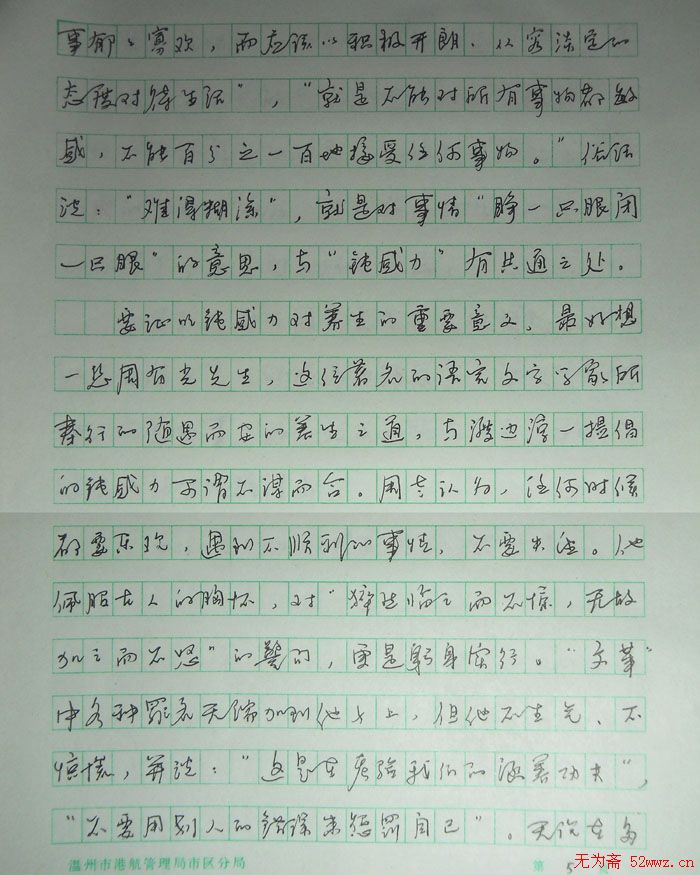 事郁郁寡欢，而应该以积极开朗、从容淡定的
态度对待生活”，“就是不能对所有事物都敏
感，不能百分之一百地接受任何事物。”俗话
说：“难得糊涂”，就是对事情“睁一只眼闭
一只眼”的意思，与“钝感力”有共通之处。
要证明钝感力对养生的重要意义，最好想
一想周有光先生，这位著名的语言文字学家所
奉行的随遇而安的养生之道，与渡边淳一提倡
的钝感力可谓不谋而合。周老认为，任何时候
都要乐观，遇到不顺利的事情，不要失望。他
佩服古人的胸怀，对“猝然临之而不惊，无故
加之而不怒”的警句，更是躬身实行。“文革”
中各种罪名无端加到他头上，但他不生气、不
惊慌，并说：“这是在考验我们的涵养功夫”，
“不要用别人的错误来惩罚自己”。无论在多
温州市港航管理局市区分局 第 5
无为斋 52wwz.cn